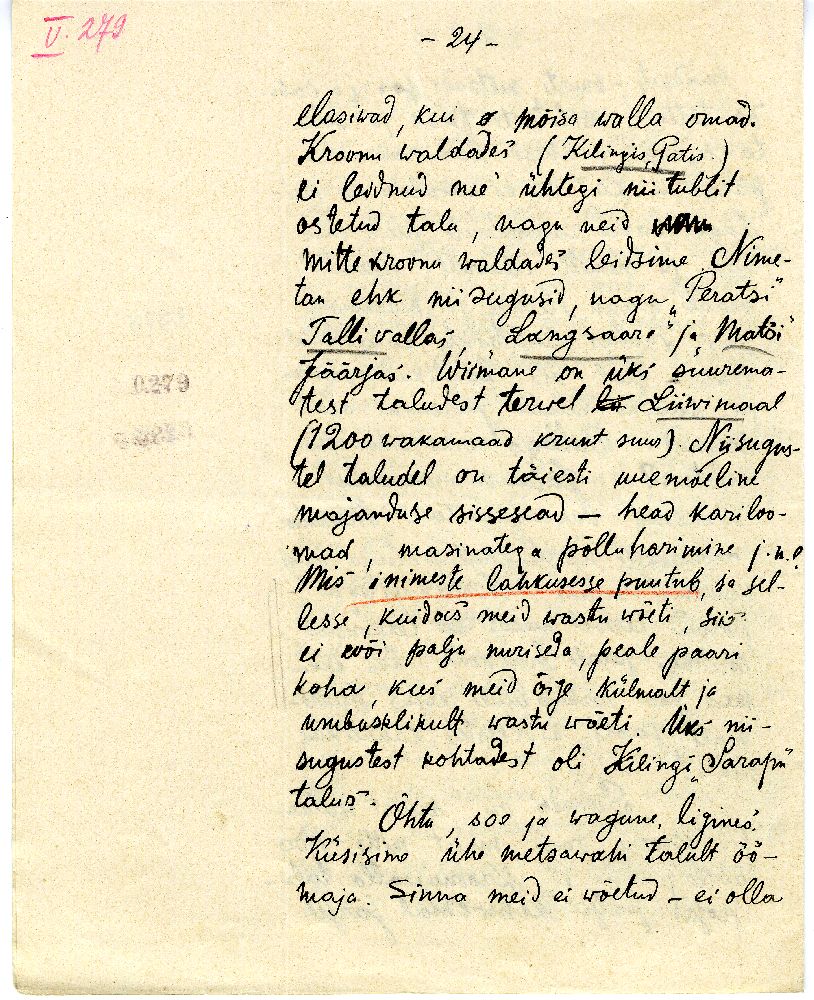 V. 279
- 24 -
elasiwad, kui mõisa walla omad.
Kroonu waldades (Kilingis, Patis)
ei leidnud me ühtegi nii tublit
ostetud talu, nagu neid
mitte kroonu waldades leidsime. Nime-
tan ehk niisugusid, nagu "Peratsi"
Talli vallas, "Langsaare" ja "Matsi"
Jäärjas. Wiimane on üks suurema-
test taludest terwel Liiwimaal
(1200 wakamaad krunt suur). Niisugus-
tel taludel on täiesti uuemoeline
majanduse sissesead – head kariloo-
mad, masinatega põlluharimine j.n.e.
Mis inimeste lahkusesse puutub, ja sel-
lesse, kuidas meid wastu wõeti, siis
ei wõi palju nuriseda, peale paari
koha, kus meid õige külmalt ja
umbusklikult wastu wõeti. Üks nii-
sugustest kohtadest oli Kilingi "Sarapu"
talus.
Õhtu, soe ja wagune, ligines.
Küsisime ühe metsawahi talult öö-
maja. Sinna meid ei wõetud – ei olla
0279